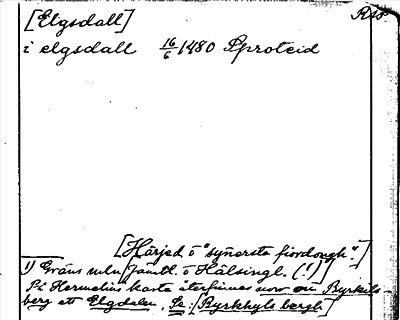 [Elgsdall]
i elgsdall 16/6 1480 Sproteid
[Härjed. o "synersta fiordongh".]
1) Gräns mln Jämtl. o Hälsingl. (!)
På Hermelins karta återfinnes nov om Byrkils-
berg ett Elgdalen, Se: [Byrkhyls bergh]